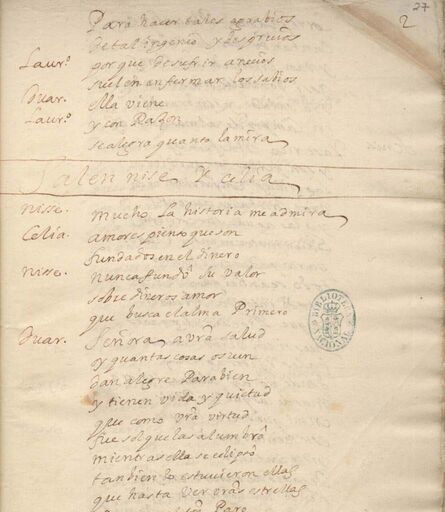 27
2
Para hacer tales agrabios
de tal ingenio y desgracias
Laur.º porque de sufrir necios
suelen enfermar los sabios
Duar. ella viene
Laur.º y con Razon
se alegra quanto la mira
Salen nise Y celia
nisse. mucho la historia me admira
Celia. amores pienso que son
fundados en el dinero
nisse. nunca fundó su valor
sobre dineros amor
que busca el alma Primero
Duar. Señora a vra salud
oy quantas cosas os ven
dan alegre Parabien
y tienen vida y quietud
que como vra virtud
fue sol que las alumbró
mientras ella se eclipsó
tanbien lo estuvieron ellas
que hasta ver vras estrellas
Paro
BIBLIOTECA NACIONAL